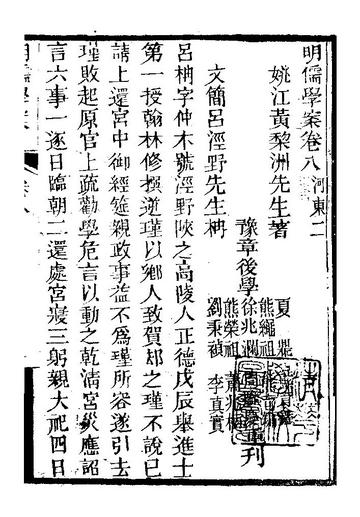 明儒學案卷八 河東二
姚江黃棃洲先生著
豫章後學
夏鼎
熊繩祖
徐兆瀾
熊榮祖
劉秉禎 李真實
刊
文簡呂涇野先生柟
呂柟字仲木號涇野陝之高陵人正德戊辰舉進士
第一授翰林修撰逆瑾以鄉人致賀却之瑾不說已
請上還宮中御經筵親政事益不為瑾所容遂引去
瑾敗起原官上疏勸學危言以動之乾清宮災應詔
言六事一逐日臨朝二還處宮寢三躬親大祀四日